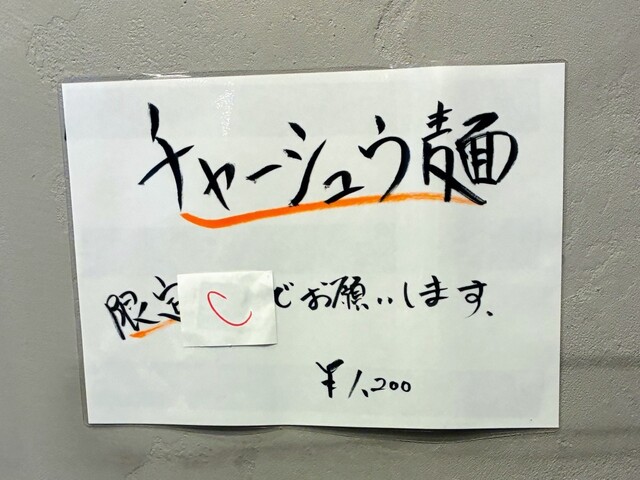 チャーシュウ麺
限定 でお願いします、
¥1,200